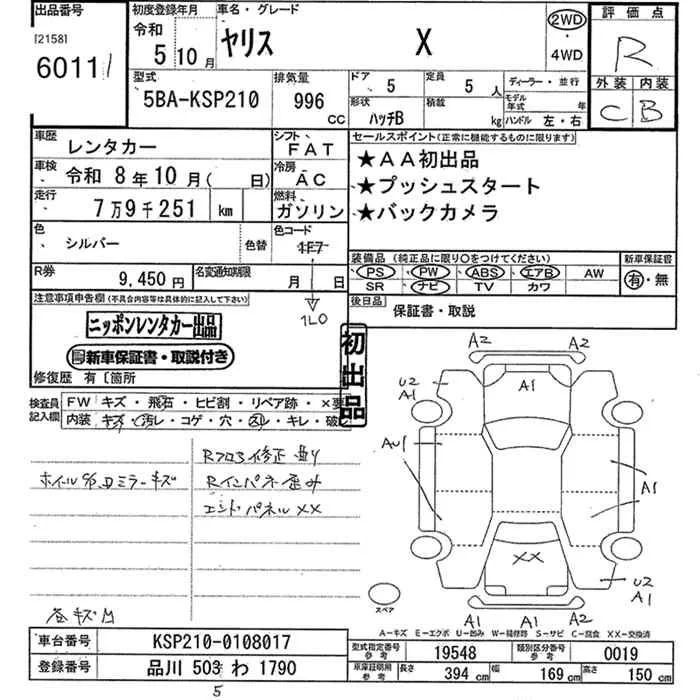 出品番号
[2158]
6011
初度登録年月
令和
5年10月
車名・グレード
ヤリス X
2WD
・
4WD
評価点
R
外装 内装
C B
型式
5BA-KSP210
排気量
996 CC
ドア 5
定員 5 人
形状 ハッチB
積載 kg
ディーラー・並行
モデル年式 年
ハンドル 左・右
車歴 レンタカー
シフト FAT
車検 令和 8年10月( 日)
冷房 AC
走行 7万9千251 km
燃料 ガソリン
セールスポイント(正常に機能するものに限ります)
★AA初出品
★プッシュスタート
★バックカメラ
色 シルバー 色替
色コード 1F7
1L0
R券 9,450円
名変通知期限 月 日
装備品 (純正品に限り○をつけてください)
PS PW ABS エアB AW
SR ナビ TV カワ
新車保証書
有・無
後日品 保証書・取説
注意事項申告欄(不具合内容等は具体的に記入して下さい)
ニッポンレンタカー出品
新車保証書・取説付き
修復歴 有〔箇所
初出品
検査員記入欄
FW キズ・飛石・ヒビ割・リペア跡・×要
内装 キズ・汚レ・コゲ・穴・凹・キレ・破レ
Rフロア修正曲り
ホイール%,ミラーキズ
Rインパネ歪み
エンドパネルXX
A2 A2
A1
U2
A1
AU1
A1
XX
U2
A1
A1 A1
スペア
A-キズ E-エクボ U-凹み W-補修跡 S-サビ C-腐食 XX-交換済
車台番号 KSP210-0108017
登録番号 品川 503 わ 1790
5
型式指定番号 参考 19548
類別区分番号 参考 0019
車庫証明用 参考
長さ 394 cm
幅 169 cm
高さ 150 cm